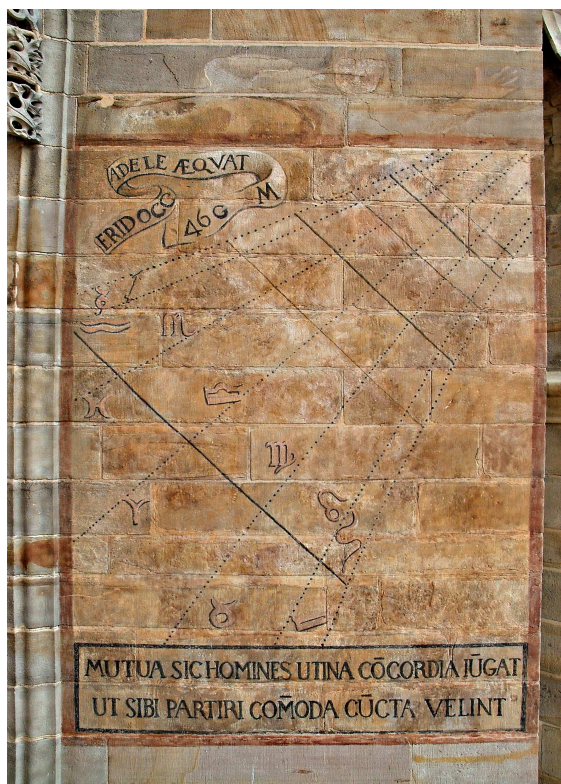 ADELE ÆQVAT
M
46G
MUTUA SIC HOMINES UTINA CŌCORDIA IŪGAT
UT SIBI PARTIRI COM̄ODA CŪCTA VELINT